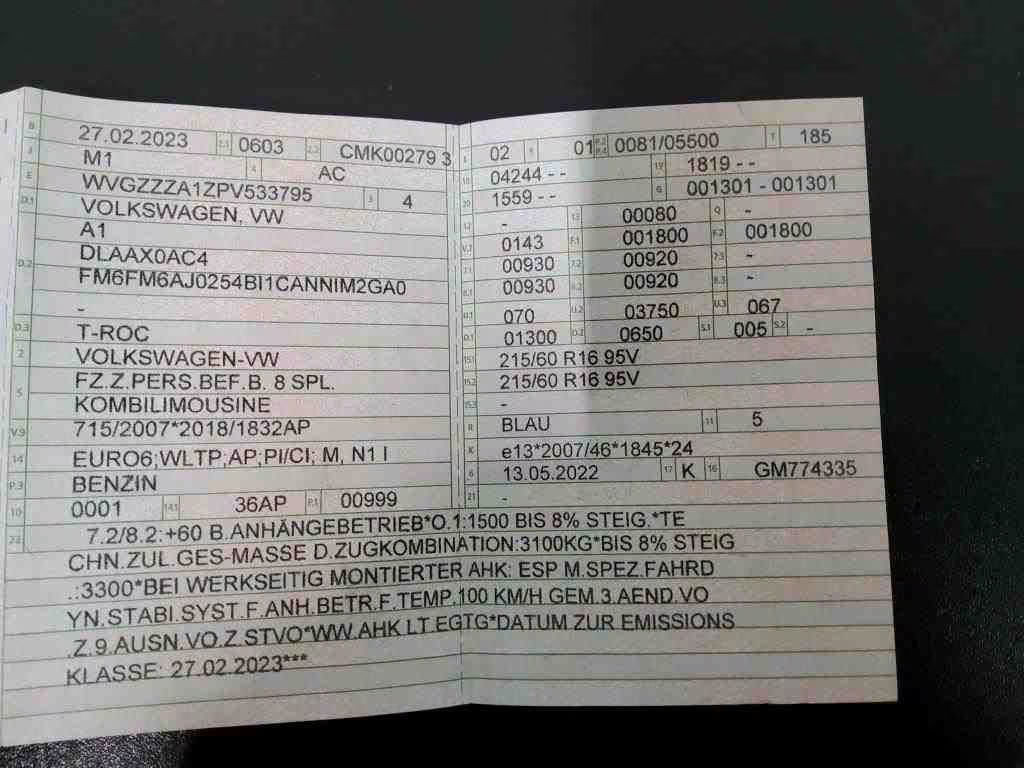 B 27.02.2023 2.1 0603 2.2 CMK00279 3
J M1 4 AC
E WVGZZZA1ZPV533795 3 4
D.1 VOLKSWAGEN, VW
D.2 A1
DLAAX0AC4
FM6FM6AJ0254BI1CANNIM2GA0
-
D.3 T-ROC
2 VOLKSWAGEN-VW
5 FZ.Z.PERS.BEF.B. 8 SPL.
KOMBILIMOUSINE
V.9 715/2007*2018/1832AP
14 EURO6;WLTP;AP;PI/CI; M, N1 I
P.3 BENZIN
10 0001 14.1 36AP P.1 00999
L 02 9 01 P.2 P.4 0081/05500 T 185
18 04244 - - 19 1819 - -
20 1559 - - G 001301 - 001301
12 - 13 00080 Q -
V.7 0143 F.1 001800 F.2 001800
7.1 00930 7.2 00920 7.3 -
8.1 00930 8.2 00920 8.3 -
U.1 070 U.2 03750 U.3 067
O.1 01300 O.2 0650 S.1 005 S.2 -
15.1 215/60 R16 95V
15.2 215/60 R16 95V
15.3 -
R BLAU 11 5
K e13*2007/46*1845*24
6 13.05.2022 17 K 16 GM774335
21 -
22 7.2/8.2:+60 B.ANHÄNGEBETRIEB*O.1:1500 BIS 8% STEIG.*TE
CHN.ZUL.GES-MASSE D.ZUGKOMBINATION:3100KG*BIS 8% STEIG
.:3300*BEI WERKSEITIG MONTIERTER AHK: ESP M.SPEZ.FAHRD
YN.STABI.SYST.F.ANH.BETR.F.TEMP.100 KM/H GEM.3.AEND.VO
.Z.9.AUSN.VO.Z.STVO*WW.AHK LT.EGTG*DATUM ZUR EMISSIONS
KLASSE: 27.02.2023***